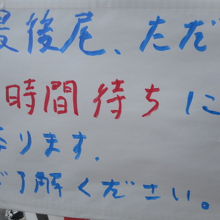 最後尾、ただ
時間待ちに
ります。
ご了解ください。